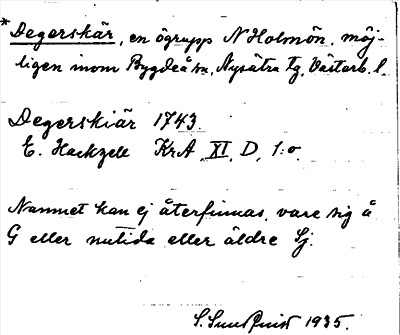 *Degerskär, en ögrupp N Holmön, möj-
ligen inom Bygdeå sn, Nysätra tg, Västerb. l.
Degerskiär 1743.
E. Hackzell KrA, XI, D, 1:o.
Namnet kan ej återfinnas, vare sig å
G eller nutida eller äldre Sj.
S. Sundquist 1935.